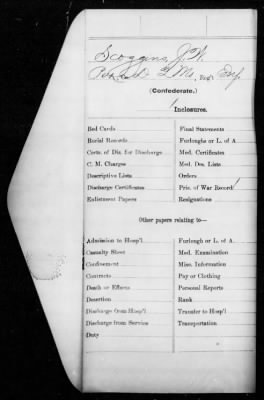 Scoggins, J. W.
Co. , Reg't Inf.
(Confederate.)
1
Inclosures.
Bed Cards Final Statements
Burial Records Furloughs or L. of A.
Certs. of Dis. for Discharge Med. Certificates
C. M. Charges Med. Des. Lists
Descriptive Lists Orders
Discharge Certificates Pris. of War Record 1
Enlistment Papers Resignations
Other papers relating to—
Admission to Hosp'l Furlough or L. of A.
Casualty Sheet Med. Examination
Confinement Misc. Information
Contracts Pay or Clothing
Death or Effects Personal Reports
Desertion Rank
Discharge from Hosp'l Transfer to Hosp'l
Discharge from Service Transportation
Duty